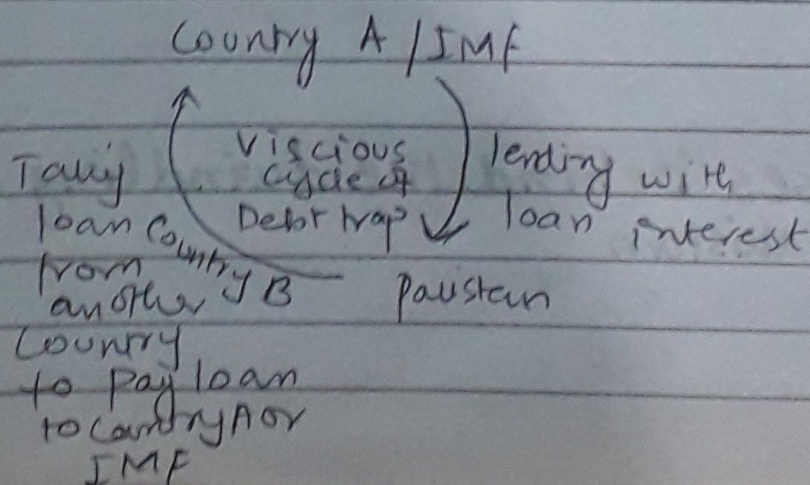 Country A / IMF
Viscious
cycle of
Debt trap
lending with
loan interest
Pakistan
Country B
Taking
loan
from
another
Country
to pay loan
to Country A or
IMF